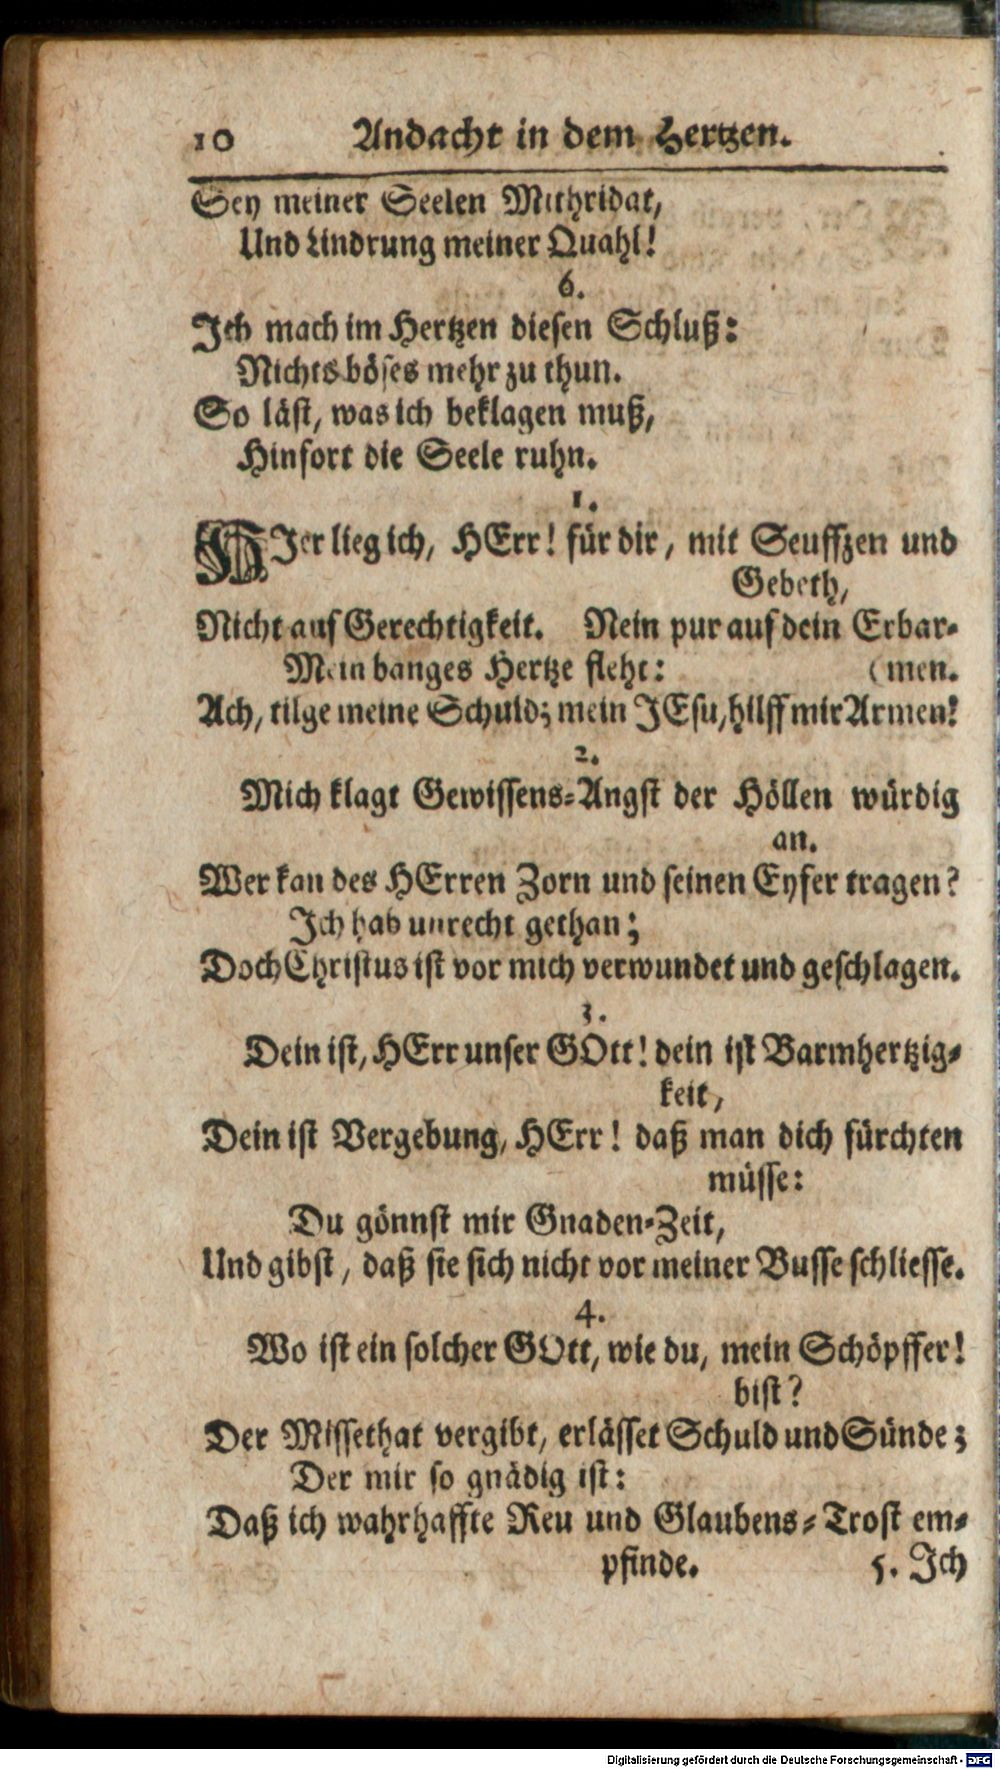 10 Andacht in dem Hertzen.
Sey meiner Seelen Mithridat,
Und Lindrung meiner Quahl!
6.
Ich mach im Hertzen diesen Schluß:
Nichts böses mehr zu thun.
So läst, was ich beklagen muß,
Hinfort die Seele ruhn.
1.
HIer lieg ich, HErr! für dir, mit Seuffzen und
Gebeth,
Nicht auf Gerechtigkeit. Nein pur auf dein Erbar-
Mein banges Hertze fleht: (men.
Ach, tilge meine Schuld; mein JEsu, hilff mir Armen!
2.
Mich klagt Gewissens-Angst der Höllen würdig
an.
Wer kan des HErren Zorn und seinen Eyfer tragen?
Ich hab unrecht gethan;
Doch Christus ist vor mich verwundet und geschlagen.
3.
Dein ist, HErr unser GOtt! dein ist Barmhertzig-
keit,
Dein ist Vergebung, HErr! daß man dich fürchten
müsse:
Du gönnst mir Gnaden-Zeit,
Und gibst, daß sie sich nicht vor meiner Busse schliesse.
4.
Wo ist ein solcher GOtt, wie du, mein Schöpffer!
bist?
Der Missethat vergibt, erlässet Schuld und Sünde;
Der mir so gnädig ist:
Daß ich wahrhaffte Reu und Glaubens-Trost em-
pfinde. 5. Ich
Digitalisierung gefördert durch die Deutsche Forschungsgemeinschaft - DFG